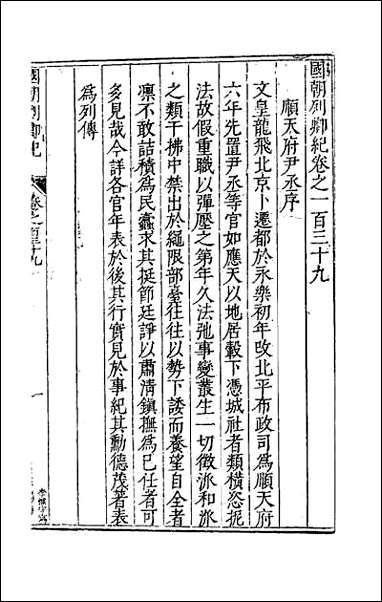 國朝列卿紀卷之一百三十九
順天府尹丞序
文皇龍飛北京卜遷都於永樂初年改北平布政司為順天府
六年先置尹丞等官如應天以地居轂下憑城社者類橫恣捉
法故假重職以彈壓之第年久法弛事變叢生一切徵派和派
之類干拂中禁出於繩限部臺往往以勢下諉而養望自全者
凛不敢詰積為民蠹求其挺節廷諍以肅清鎮撫為已任者可
多見哉今詳各官年表於後其行實見於事紀其勳德茂著表
為列傳
國朝列卿紀
卷之一百三十九
一